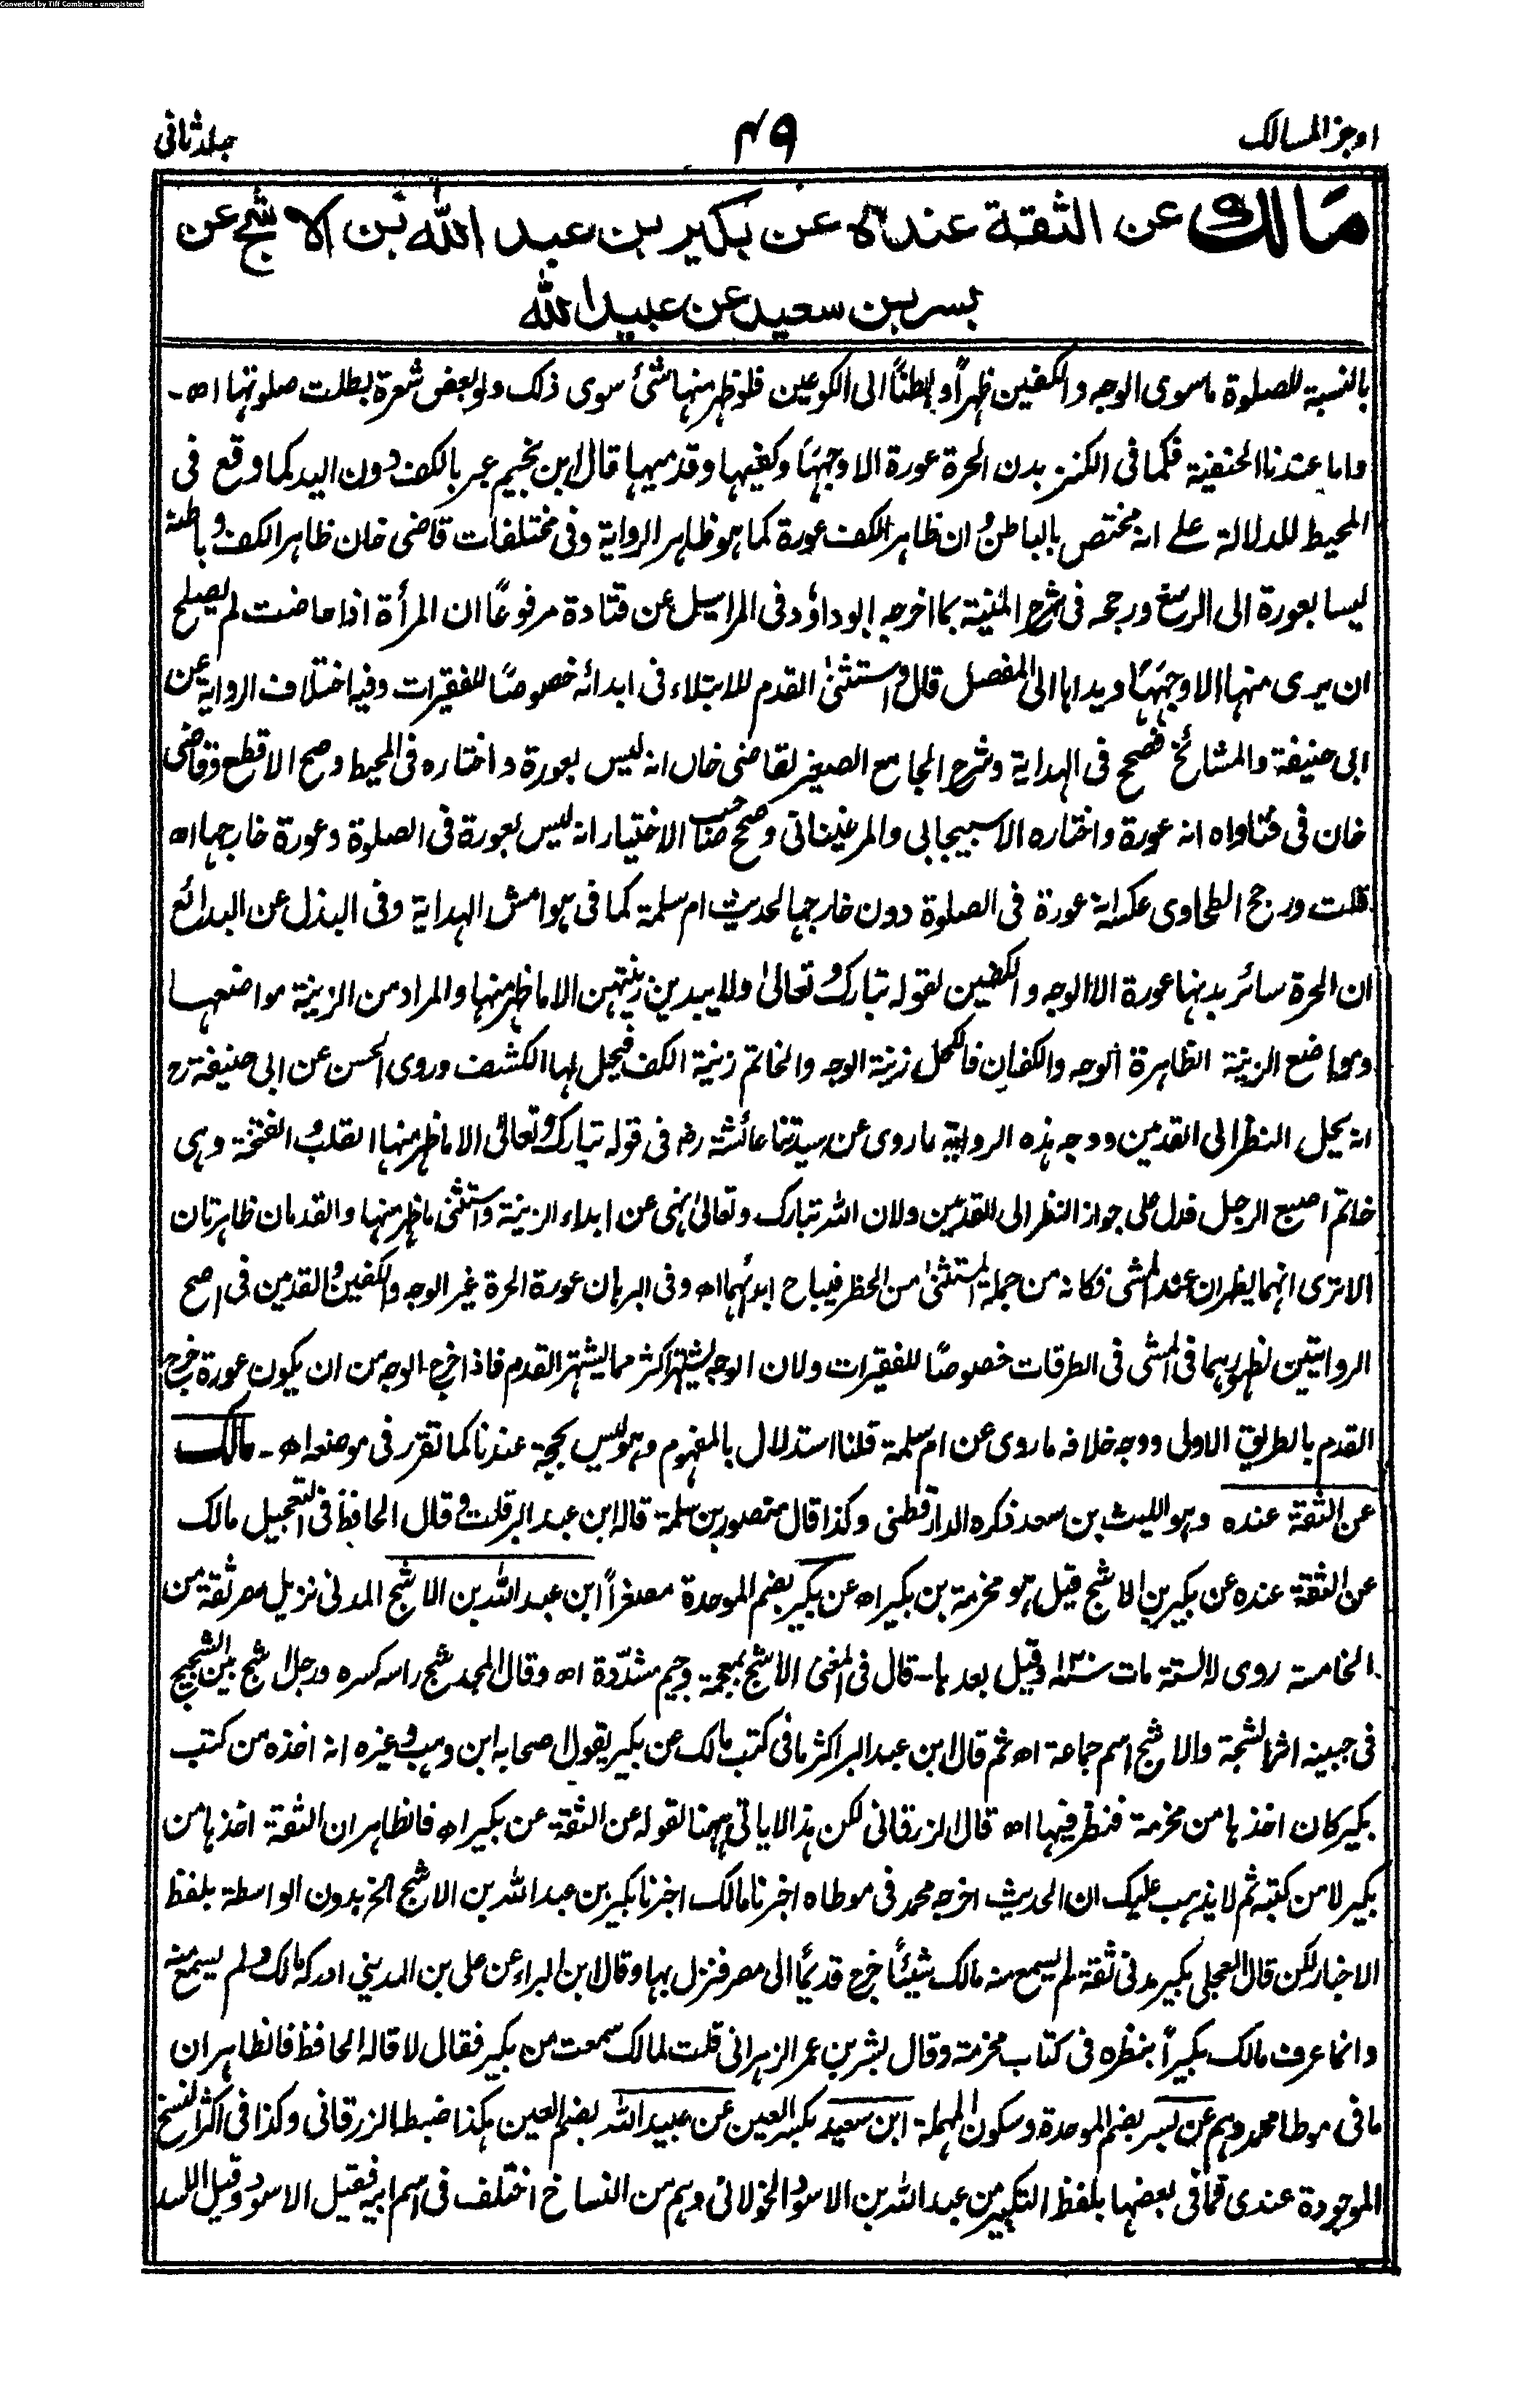 Converted by Tiff Combine - unregistered
اوجز المسالك
٤٩
جلد ثانی
مالك عن الثقة عنده عن بكير بن عبد الله بن الاشج عن
بسر بن سعيد عن عبيد الله
بالنسبة للصلوة ما سوى الوجه والكفين ظهراً وبطناً الى الكوعين فلو ظهر منها شئ سوى ذلك ولو بعض شعرة بطلت صلوتها اھ۔
واما عندنا الحنفية فكما فى الكنز بدن الحرة عورة الا وجهها وكفيها وقدميها قال ابن نجيم عبر بالكف دون اليد كما وقع فى
المحيط للدلالة على انه مختص بالباطن وان ظاهر الكف عورة كما هو ظاهر الرواية وفى مختلفات قاضى خان ظاهر الكف وباطنه
ليسا بعورة الى الرسغ ورجحه فى شرح المنية بما اخرجه ابو داؤد فى المراسيل عن قتادة مرفوعًا ان المرأة اذا حاضت لم يصلح
ان يرى منها الا وجهها ويداها الى المفصل قال واستثنى القدم للابتلاء فى ابدائه خصوصًا للفقيرات وفيه اختلاف الرواية عن
ابى حنيفة والمشائخ فصحح فى الهداية وشرح الجامع الصغير لقاضى خان انه ليس بعورة واختاره فى المحيط وصح الاقطع وقاضى
خان فى فتاواه انه عورة واختاره الاسبيجابى والمرغينانى وصحح صاحب الاختيار انه ليس بعورة فى الصلوة وعورة خارجها اھ
قلت ورجح الطحاوى عكسه انه عورة فى الصلوة دون خارجها لحديث ام سلمة كما فى هوامش الهداية وفى البذل عن البدائع
ان الحرة سائر بدنها عورة الا الوجه والكفين لقوله تبارك وتعالىٰ ولا يبدين زينتهن الا ما ظهر منها والمراد من الزينة مواضعها
ومواضع الزينة الظاهرة الوجه والكفان فالكحل زينة الوجه والخاتم زينة الكف فيحل لها الكشف وروى الحسن عن ابى حنيفة رح
انه يحل النظر الى القدمين ووجه هذه الرواية ما روى عن سيدتنا عائشة رض فى قوله تبارك وتعالى الا ما ظهر منها القلب والفتخة وهى
خاتم اصبع الرجل فدل على جواز النظر الى القدمين ولان الله تبارك وتعالىٰ نهى عن ابداء الزينة واستثنى ما ظهر منها والقدمان ظاهرتان
الا ترى انهما يظهران عند المشى فكانه من جملة المستثنىٰ من الحظر فيباح ابدائهما اھ وفى البرهان عورة الحرة غير الوجه والكفين والقدمين فى اصح
الروايتين لظهورهما فى المشى فى الطرقات خصوصًا للفقيرات ولان الوجه يشتهر اكثر مما يشتهر القدم فاذا خرج الوجه من ان يكون عورة خرج
القدم بالطريق الاولى ووجه خلافه ما روى عن ام سلمة قلنا استدلال بالمفهوم وهو ليس بحجة عندنا كما تقرر فى موضعه اھ۔ مالك
عن الثقة عنده وهو الليث بن سعد ذكره الدارقطنى وكذا قال منصور بن سلمة قاله ابن عبد البر قلت وقال الحافظ فى التعجيل مالك
عن الثقة عنده عن بكير بن الاشج قيل هو مخرمة بن بكير اھ عن بكير بضم الموحدة مصغراً ابن عبد الله بن الاشج المدنى نزيل مصر ثقة من
الخامسة روى له الستة مات سنة ١٢٠ وقيل بعدها۔ قال فى المغنى الاشج بمعجمة وجيم مشدّدة اھ وقال المجد شج راسه كسره ورجل اشج بين الشجج
فى جبينه اثر الشجة والاشج اسم جماعة اھ ثم قال ابن عبد البر اكثر ما فى كتب مالك عن بكير يقول اصحابه ابن وهب وغيره انه اخذه من كتب
بكير كان اخذها من مخرمة فنظر فيها اھ قال الزرقانى لكن هذا لا ياتى ههنا لقوله عن الثقة عن بكير اھ فالظاهر ان الثقة اخذها من
بكير لا من كتبه ثم لا يذهب عليك ان الحديث اخرجه محمد فى موطاه اخبرنا مالك اخبرنا بكير بن عبد الله بن الاشج الخ بدون الواسطة بلفظ
الاخبار لكن قال العجلى بكير مدنى ثقة لم يسمع منه مالك شيئاً خرج قديمًا الى مصر فنزل بها وقال ابن البراء عن على بن المدينى ادركه مالك ولم يسمع منه
وانما عرف مالك بكيراً بنظره فى كتاب مخرمة وقال بشر بن عمر الزهرانى قلت لمالك سمعت من بكير فقال لا قاله الحافظ فالظاهر ان
ما فى موطا محمد وهم عن بسر بضم الموحدة وسكون المهملة ابن سعيد بكسر العين عن عبيد الله بضم العين هكذا ضبط الزرقانى وكذا فى اكثر النسخ
الموجودة عندى فما فى بعضها بلفظ التكبير من عبد الله بن الاسود الخولانى وهم من النساخ اختلف فى اسم ابيه فقيل الاسود وقيل الاسد